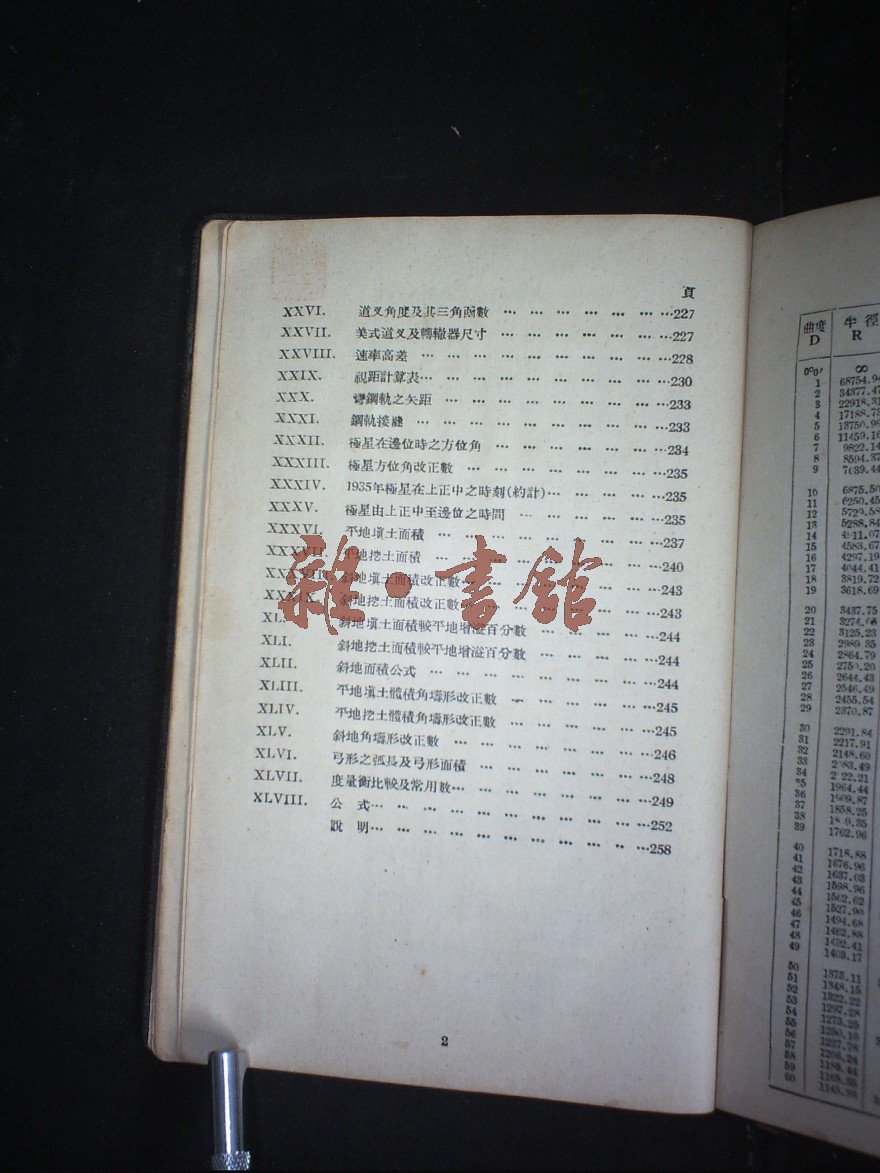 頁
XXVI. 道叉角度及其三角函數 … … … … … … …227
XXVII. 美式道叉及轉轍器尺寸 … … … … … … …227
XXVIII. 速率高差 … … … … … … … … … …228
XXIX. 視距計算表… … … … … … … … … …230
XXX. 彎鋼軌之矢距 … … … … … … … … …233
XXXI. 鋼軌接縫 … … … … … … … … … …233
XXXII. 極星在邊位時之方位角 … … … … … … …234
XXXIII. 極星方位角改正數 … … … … … … … …235
XXXIV. 1935年極星在上正中之時刻(約計)… … … … …235
XXXV. 極星由上正中至邊位之時間 … … … … … …235
XXXVI. 平地填土面積 … … … … … … … … …237
XXXVII. 平地挖土面積 … … … … … … … … …240
XXXVIII. 斜地填土面積改正數… … … … … … … …243
XXXIX. 斜地挖土面積改正數… … … … … … … …243
XL. 斜地填土面積較平地增溢百分數 … … … … …244
XLI. 斜地挖土面積較平地增溢百分數 … … … … …244
XLII. 斜地面積公式 … … … … … … … … …244
XLIII. 平地填土體積角壔形改正數 … … … … … …245
XLIV. 平地挖土體積角壔形改正數 … … … … …245
XLV. 斜地角壔形改正數 … … … … … … … …246
XLVI. 弓形之弧長及弓形面積 … … … … … … …248
XLVII. 度量衡比較及常用數… … … … … … … …249
XLVIII. 公式… … … … … … … … … … …252
說明… … … … … … … … … … …258
2
雜·書館
曲度 半徑
D R
0°0′ ∞
1 68754.94
2 34377.47
3 22918.31
4 17188.73
5 13750.99
6 11459.16
7 9822.14
8 8594.37
9 7639.44
10 6875.50
11 6250.45
12 5729.58
13 5288.84
14 4911.07
15 4583.67
16 4297.19
17 4044.41
18 3819.72
19 3618.69
20 3437.75
21 3274.06
22 3125.23
23 2989.35
24 2864.79
25 2750.20
26 2644.43
27 2546.49
28 2455.54
29 2370.87
30 2291.84
31 2217.91
32 2148.60
33 2083.49
34 2022.21
35 1964.44
36 1909.87
37 1858.25
38 1809.35
39 1762.96
40 1718.88
41 1676.96
42 1637.03
43 1598.96
44 1562.62
45 1527.90
46 1494.68
47 1462.88
48 1432.41
49 1403.17
50 1375.11
51 1348.15
52 1322.22
53 1297.28
54 1273.25
55 1250.10
56 1227.78
57 1206.24
58 1185.44
59 1165.35
60 1145.93